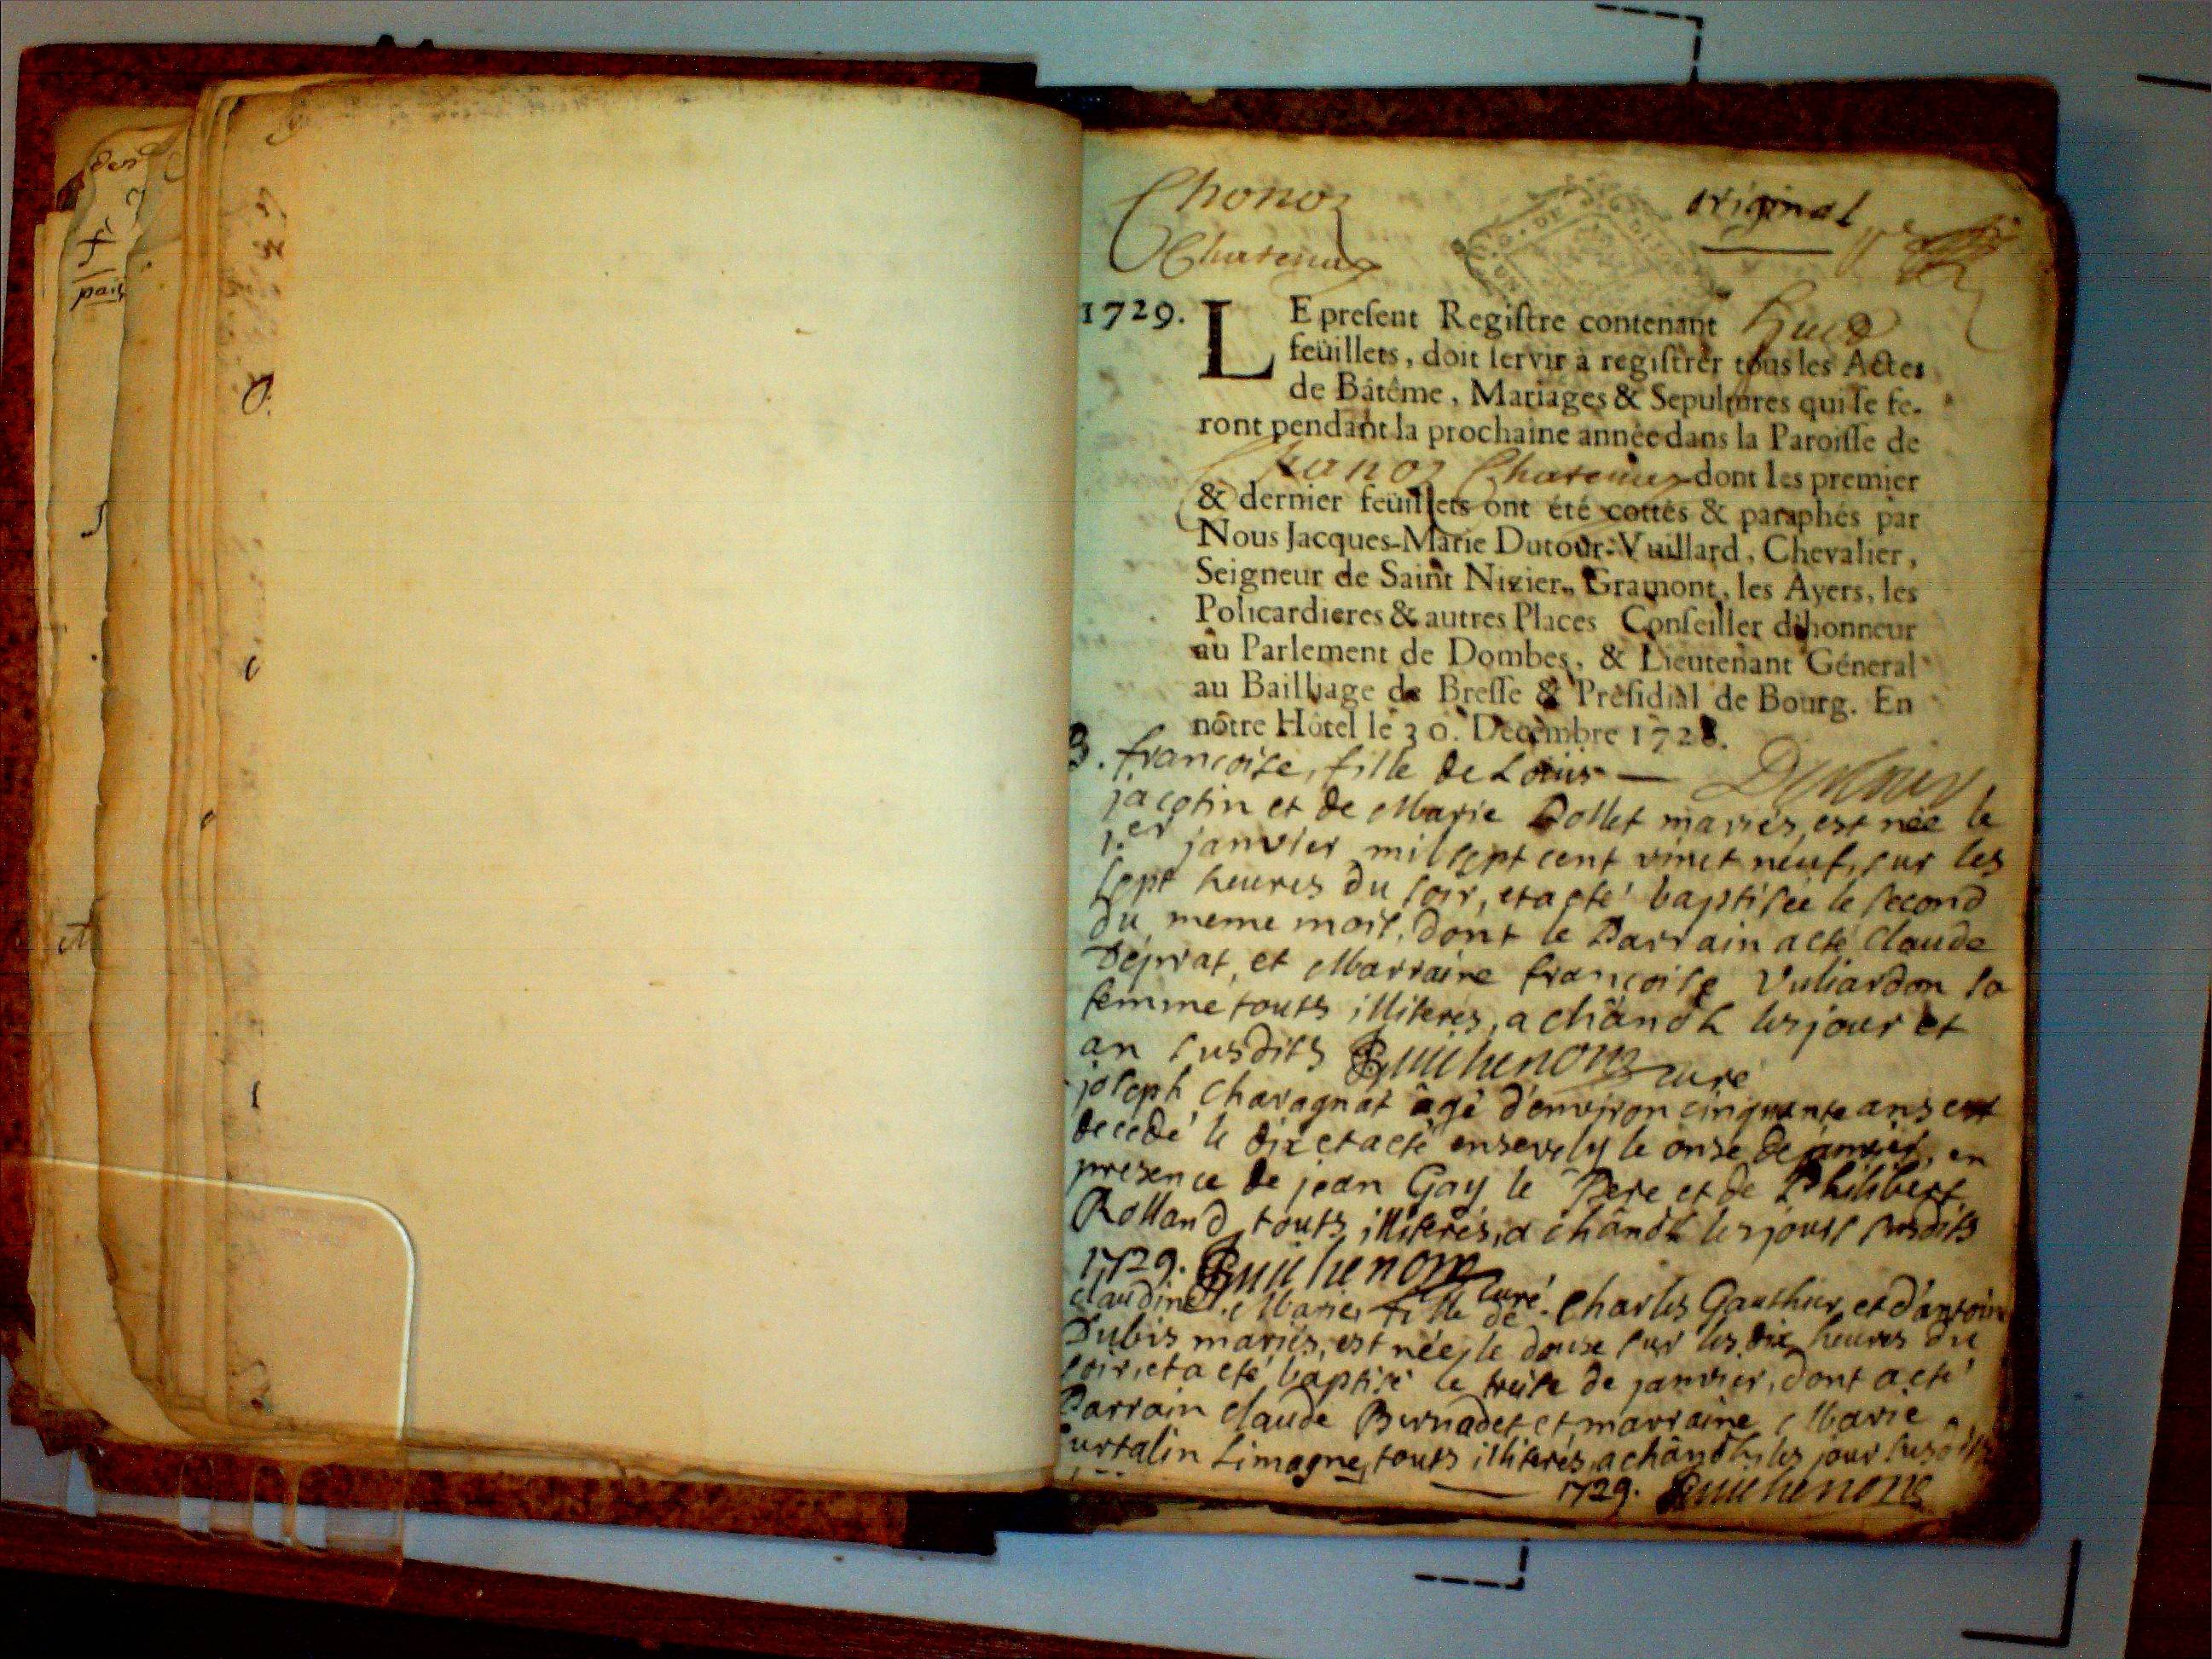 Chonoz
Chatenay
original
1729. LE present Registre contenant huit
feüillets, doit servir à registrer tous les Actes
de Bâtême, Mariages & Sepultures qui se fe-
ront pendant la prochaine année dans la Paroisse de
Chanoz Chatenay dont les premier
& dernier feüillets ont été cottés & paraphés par
Nous Jacques-Marie Dutour-Vuillard, Chevalier,
Seigneur de Saint Nizier, Gramont, les Ayers, les
Policardieres & autres Places Conseiller d'honneur
au Parlement de Dombes, & Lieutenant Géneral
au Bailliage de Bresse & Présidial de Bourg. En
nôtre Hôtel le 30. Decembre 1728.
B. françoise, fille de Loüis — Dutour
jacotin et de Marie Dollet mariés, est née le
1.er janvier mil sept cent vint neuf, sur les
sept heures du soir, et a eté baptisée le second
du meme mois, dont le Parrain a eté claude
Déprat, et Marraine françoise Vuliardon sa
femme touts illiterés, a chânoz les jour et
an susdits Guichenon curé
joseph Charagnat âgé d'environ cinquante ans est
decedé le dix et a eté ensevely le onse de janvier, en
presence de jean Gay le Pere et de Philibert
Rolland, touts illiterés, a chânoz les jours susdits
1729. Guichenon curé.
claudine Marie, fille de Charles Gauthier, et d'antoine
Dubis mariés, est née, le douse sur les dix heures du
soir, et a eté baptisé le treise de janvier, dont a eté
Parrain claude Bernadet, et marraine Marie
Curtalin Limagne, touts illiterés, a chânoz, les jour susdits
1729. Guichenon
des
f
pais
et